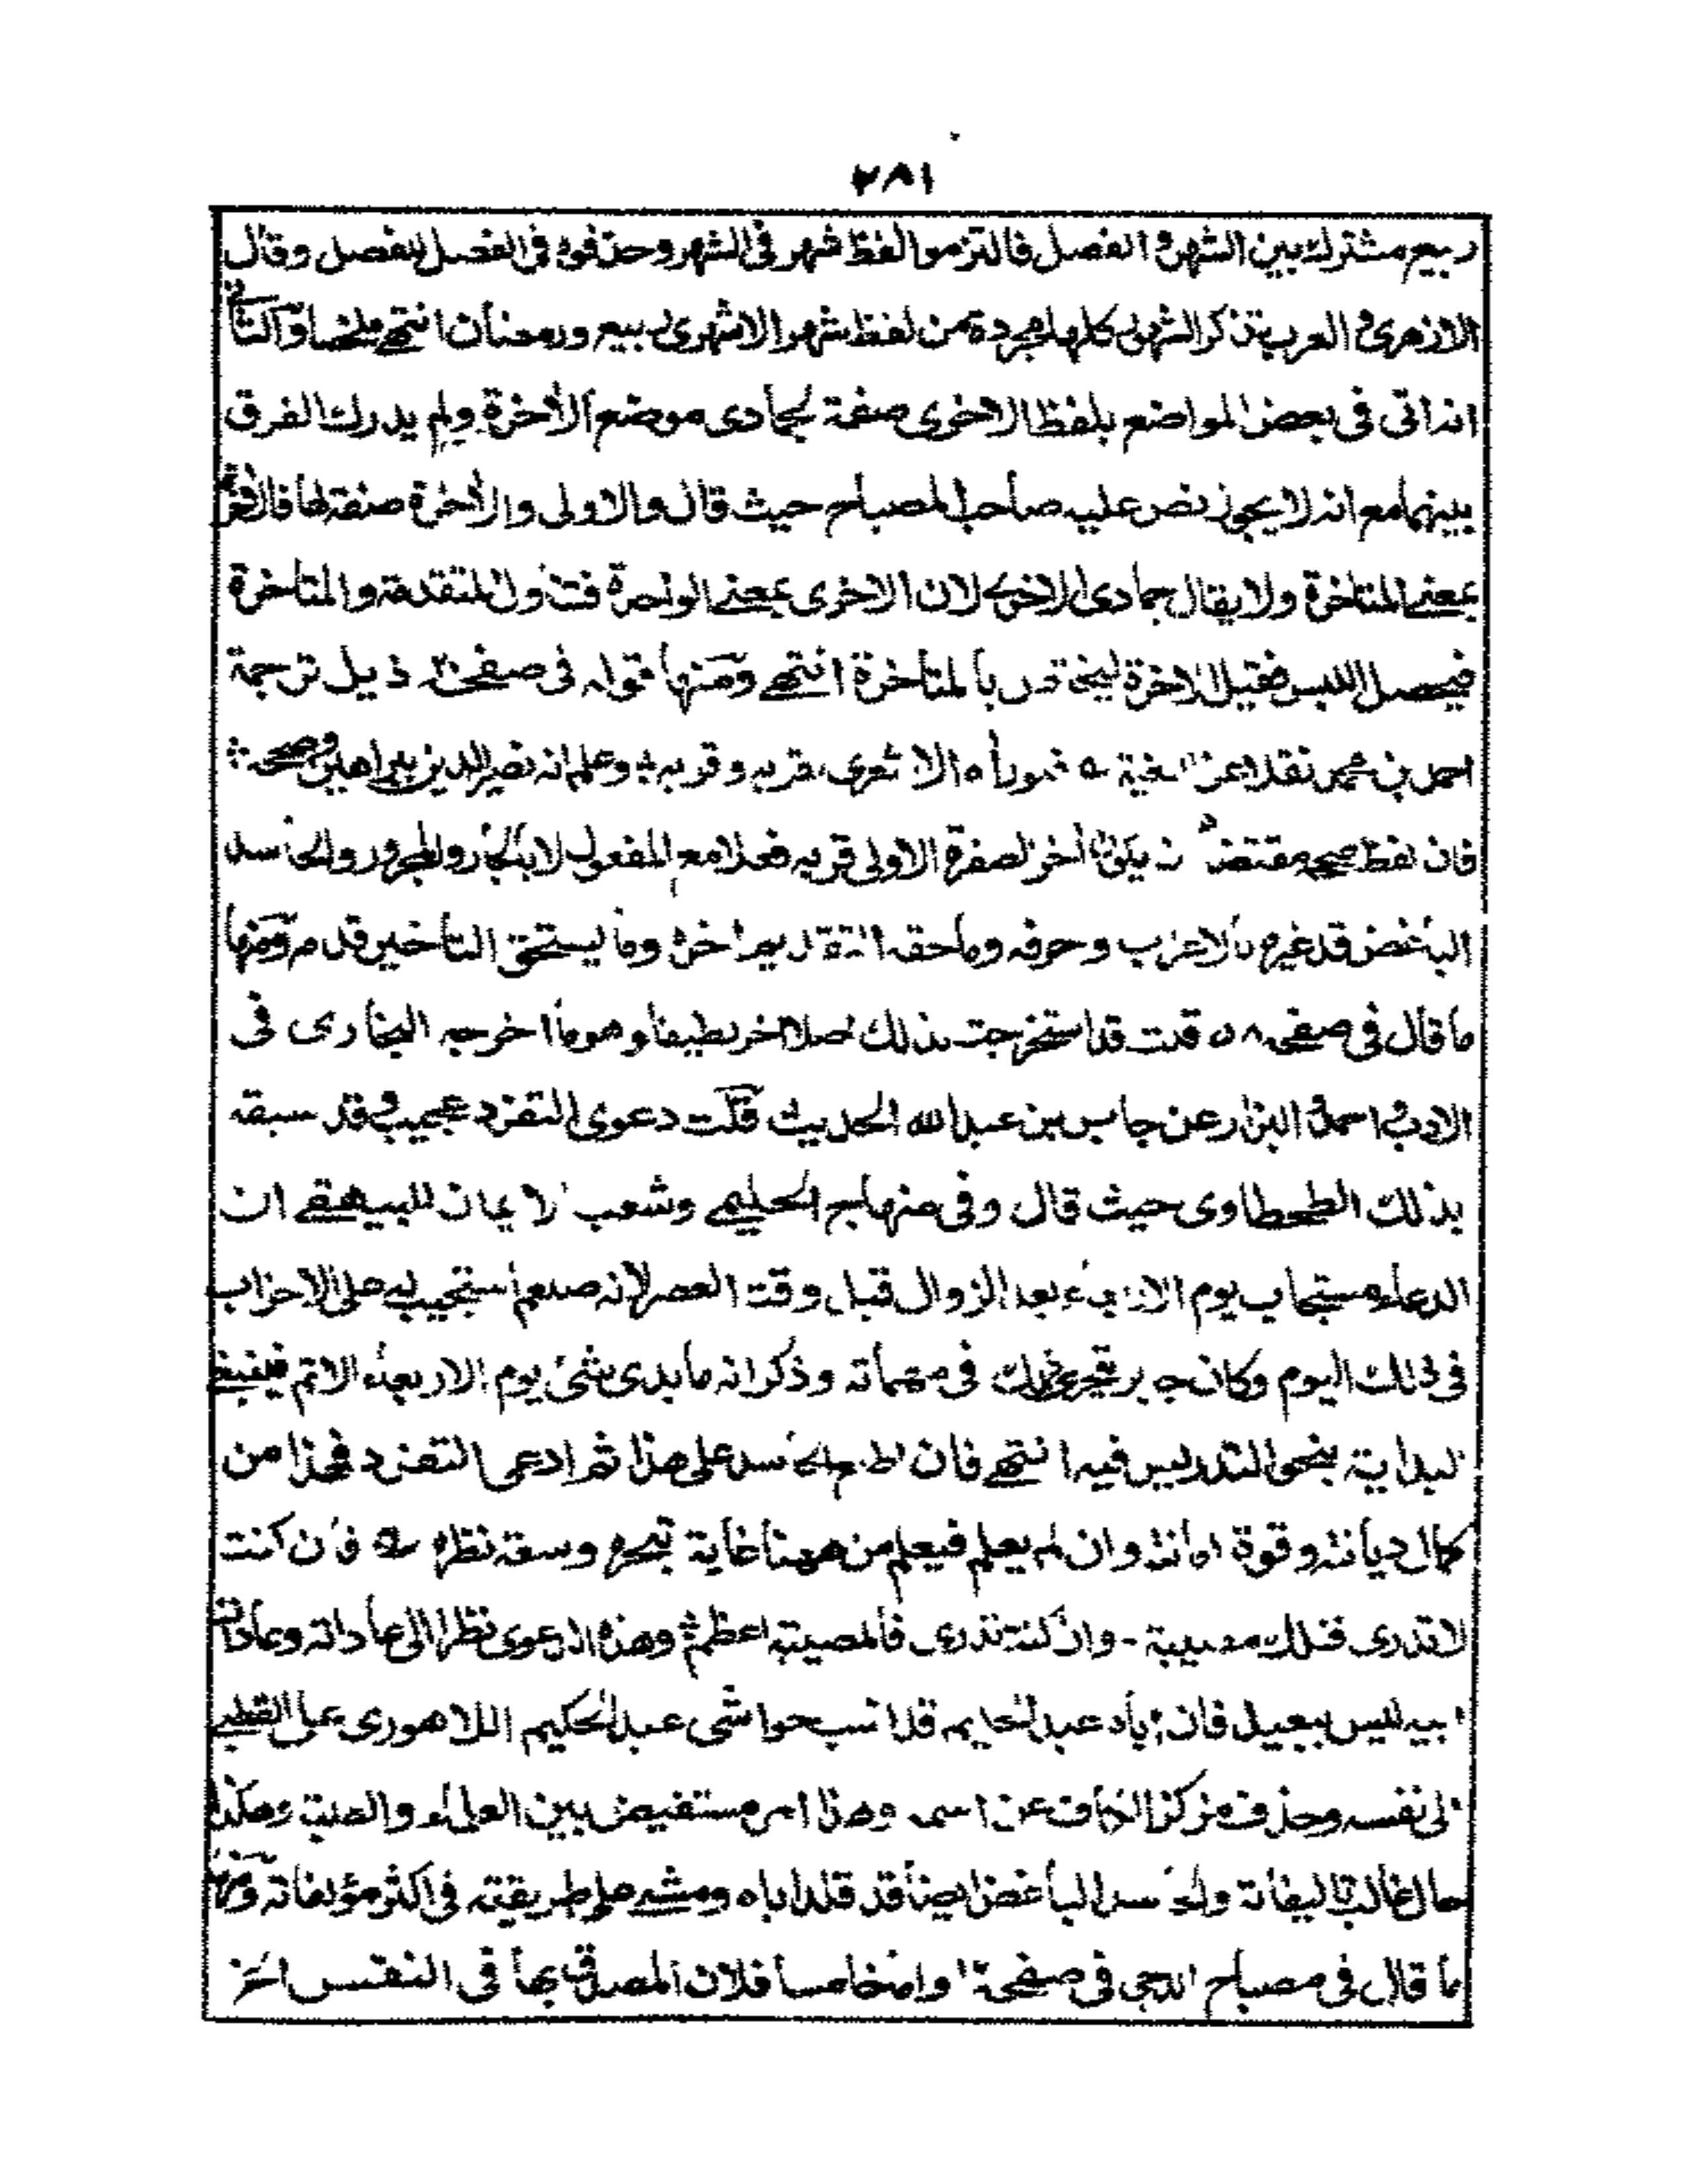 ٢٨١
ربيع مشترك بين الشهر و الفصل فالتزموا لفظ شهر فى الشهر وحذفوه فى الفصل للفصل وقال
الازهرى و العرب تذكر الشهور كلها مجردة من لفظ شهر الا شهرى ربيع ورمضان انتهى ملخصا و الثانى
انه اتى فى بعض المواضع بلفظ الاخرى صفة لجمادى موضع الأخرة ولم يدرك الفرق
بينهما مع انه لا يجوز نص عليه صاحب المصباح حيث قال والاولى والأخرة صفة لها فالأخرة
بمعنى المتاخرة ولا يقال جمادى الاخرى لان الاخرى بمعنى الواحدة فتناول المتقدمة والمتاخرة
فيحصل اللبس فقيل الاخرة ليختص بالمتأخرة انتهى ومنها قوله فى صفحة ذيل ترجمة
احمد بن محمد نقلا عن البغية الاشعرى قربه و قربه وعلم انه نصر الدين
فان لفظ مقتض ان يكون أخر الصفرة الاولى قربه فعلا مع المفعول لا الجار والمجرور والحاسد
الباغض قد غيره بالاعراب وحرفه وما حقه التقديم اخره وما يستحق التأخير قدمه ومنها
ما قال فى صفحه ٥٨ قلت قد استخرجت لذلك اصلا اخر لطيفا وهو ما اخرجه البخارى فى
الادب و احمد و البزار عن جابر بن عبد الله الحديث قلت دعوى التفرد عجيب و قد سبقه
بذلك الطحطاوى حيث قال وفى منهاج الحليمى وشعب الايمان للبيهقى ان
الدعاء مستجاب يوم الاربعاء بعد الزوال قبل وقت العصر لانه صلعم استجيب له على الاحزاب
فى ذلك اليوم وكان جابر يتحرى ذلك فى مهماته وذكر انه ما بدى شئ يوم الاربعاء الا تم فينبغى
البداية بنحو التدريس فيه انتهى فان اطلع الحاسد على هذا ثم ادعى التفرد فهذا من
كمال ديانته وقوة امانته وان لم يعلم فيعلم من ههنا غاية تبحره وسعة نظره فان كنت
لا تدرى فتلك مصيبة - وان كنت تدرى فالمصيبة اعظم وهذه الدعوى نظرا الى عاداته وعادات
ابيه ليس ببعيد فان اباه عبد الحليم قد انسب حواشى عبد الحكيم اللاهورى على القطبى
الى نفسه وحذف مركز الكاف عن اسمه وهذا امر مستفيض بين العلماء والطلبة وهكذا
حال غالب تاليفاته والحاسد الباغض ايضا قد قلد اباه ومشى على طريقته فى اكثر مؤلفاته ومنها
ما قال فى مصباح الدجى فى صفحة واما خامسا فلان المصدق بها فى النفس الخ